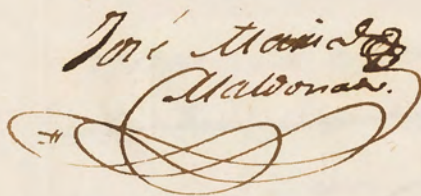 José Maria de
Maldonado.